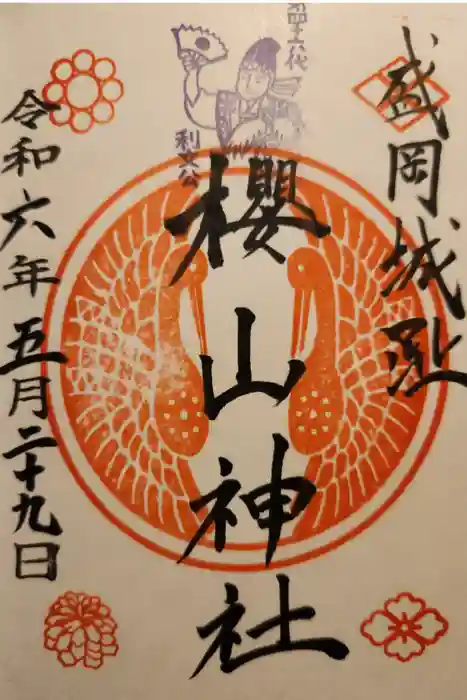 盛岡城
第四十六代
利文公
櫻山神社
令和六年五月二十九日